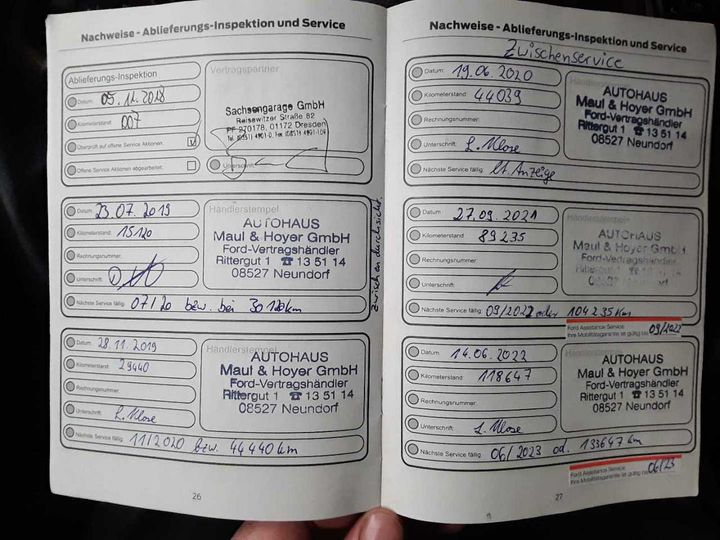 Nachweise - Ablieferungs-Inspektion und Service
Ablieferungs-Inspektion
Datum: 05.11.2018
Kilometerstand: 007
Überprüft auf offene Service Aktionen:
Offene Service Aktionen abgearbeitet:
Vertragspartner
Sachsengarage GmbH
Reisewitzer Straße 82
PF 270178, 01172 Dresden
Unterschrift:
Datum: 23.07.2019
Kilometerstand: 15120
Rechnungsnummer:
Unterschrift:
Nächste Service fällig: 07/20 bzw. bei 30 120 km
Händlerstempel
AUTOHAUS
Maul & Hoyer GmbH
Ford-Vertragshändler
Rittergut 1 ☎ 13 51 14
08527 Neundorf
Zwischendurchsicht
Datum: 28.11.2019
Kilometerstand: 29440
Rechnungsnummer:
Unterschrift: L. Klose
Nächste Service fällig: 11/2020 bzw. 44440 km
Händlerstempel
AUTOHAUS
Maul & Hoyer GmbH
Ford-Vertragshändler
Rittergut 1 ☎ 13 51 14
08527 Neundorf
26
Nachweise - Ablieferungs-Inspektion und Service
Zwischenservice
Datum: 19.06.2020
Kilometerstand: 44039
Rechnungsnummer:
Unterschrift: L. Klose
Nächste Service fällig: lt. Anzeige
AUTOHAUS
Maul & Hoyer GmbH
Ford-Vertragshändler
Rittergut 1 ☎ 13 51 14
08527 Neundorf
Datum: 27.09.2021
Kilometerstand: 89235
Rechnungsnummer:
Unterschrift:
Nächste Service fällig: 09/2022 oder 104235 km
Händlerstempel
AUTOHAUS
Maul & Hoyer GmbH
Ford-Vertragshändler
Ford Assistance Service
Ihre Mobilitätsgarantie ist gültig bis 09/2022
Datum: 14.06.2022
Kilometerstand: 118647
Rechnungsnummer:
Unterschrift: L. Klose
Nächste Service fällig: 06/2023 od. 133647 km
Händlerstempel
AUTOHAUS
Maul & Hoyer GmbH
Ford-Vertragshändler
Rittergut 1 ☎ 13 51 14
08527 Neundorf
Ford Assistance Service
Ihre Mobilitätsgarantie ist gültig bis 06/23
27